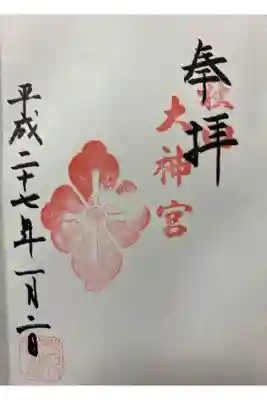 奉拝
大神宮
平成二十七年一月二日